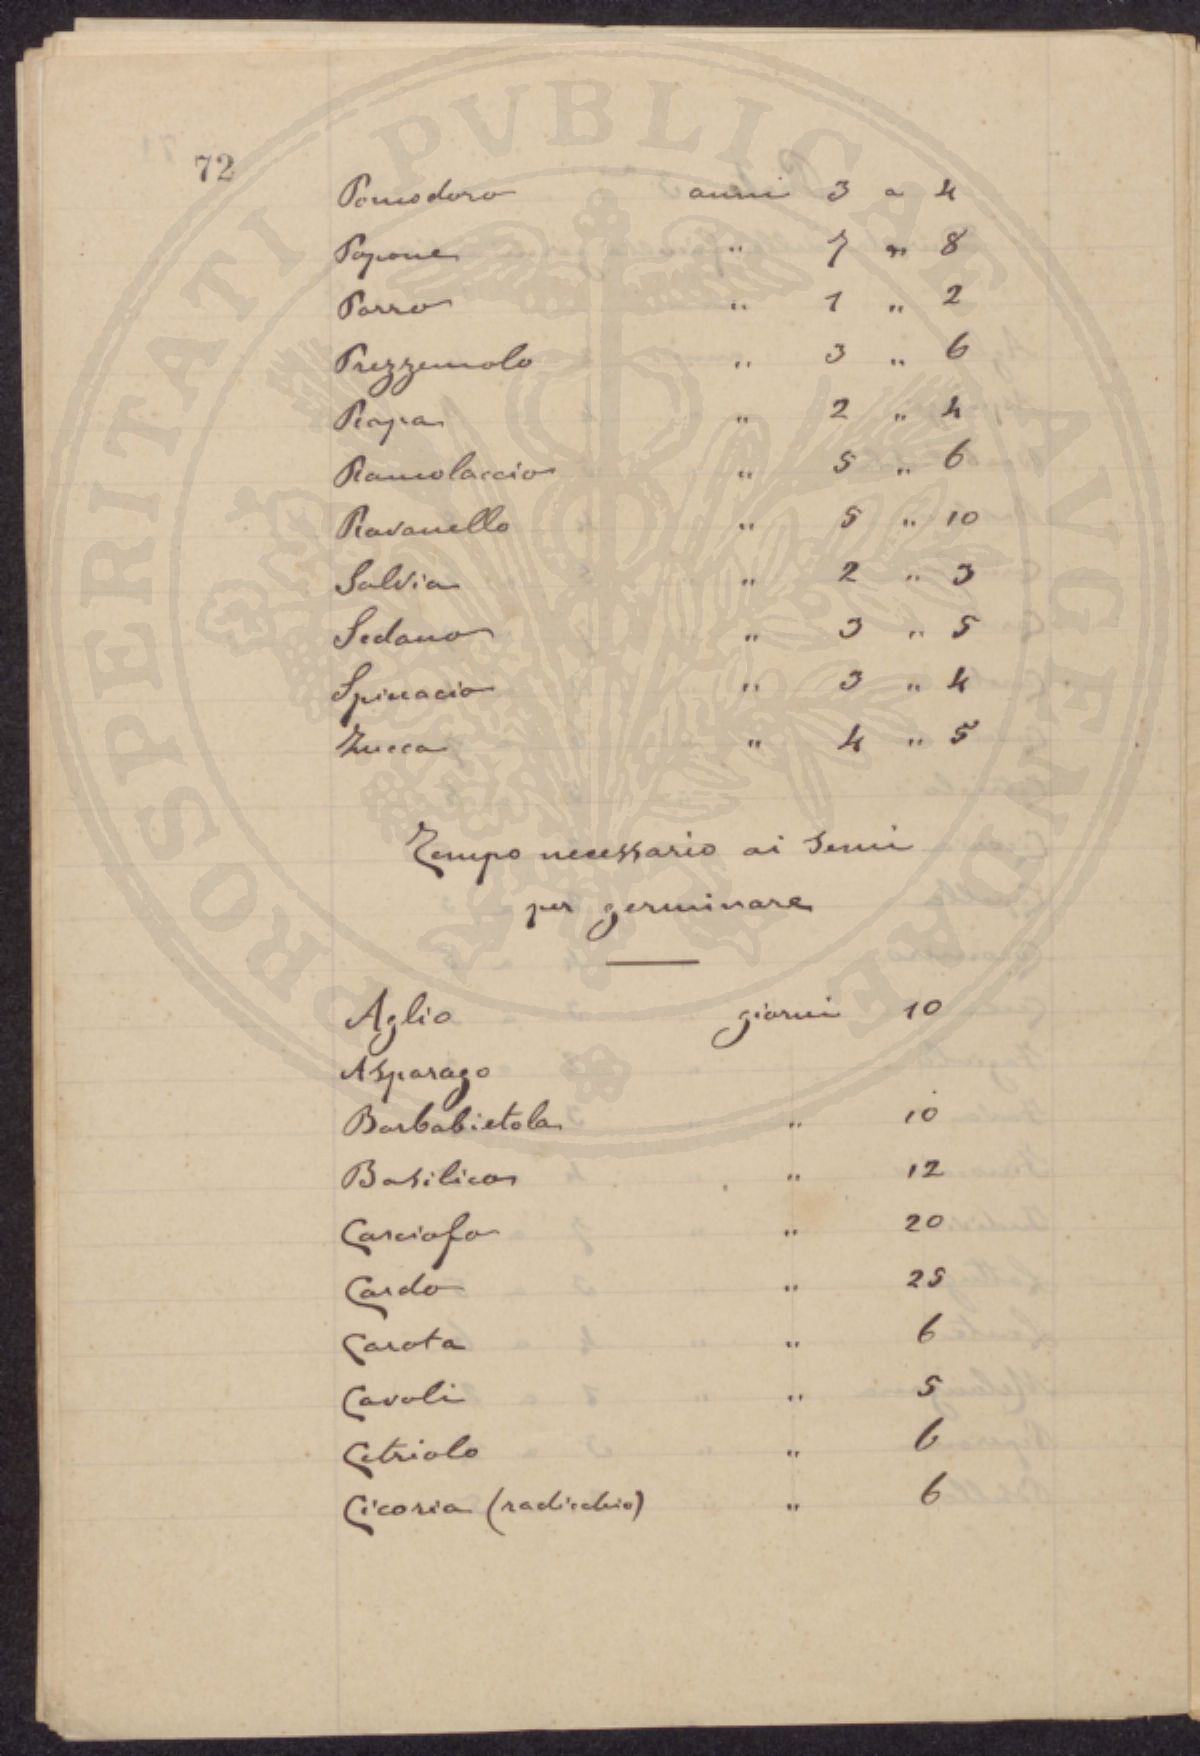 72
Pomodoro anni 3 a 4
Popone " 7 " 8
Porro " 1 " 2
Prezzemolo " 3 " 6
Rapa " 2 " 4
Ramolaccio " 5 " 6
Ravanello " 5 " 10
Salvia " 2 " 3
Sedano " 3 " 5
Spinacio " 3 " 4
Zucca " 4 " 5
Tempo necessario ai semi
per germinare
Aglio giorni 10
Asparago
Barbabietola " 10
Basilico " 12
Carciofo " 20
Cardo " 25
Carota " 6
Cavoli " 5
Cetriolo " 6
Cicoria (radicchio) " 6
PROSPERITATI PVBLICAE AVGENDAE